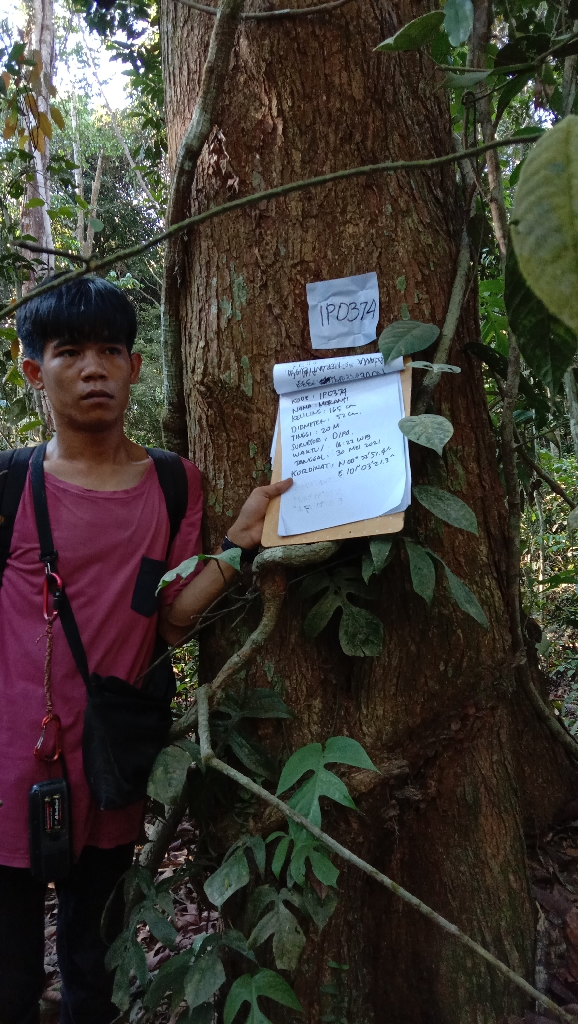 IP0374
KODE : IP0374
NAMA : MERANTI
KELILING : 165 cm
DIAMETER : 52 cm
TINGGI : 20 M
SURVEYOR : DIPO
WAKTU : 16:23 WIB
TANGGAL : 30 MEI 2021
KOORDINAT : N 00° 52' 51.4"
E 101° 03' 21.3"